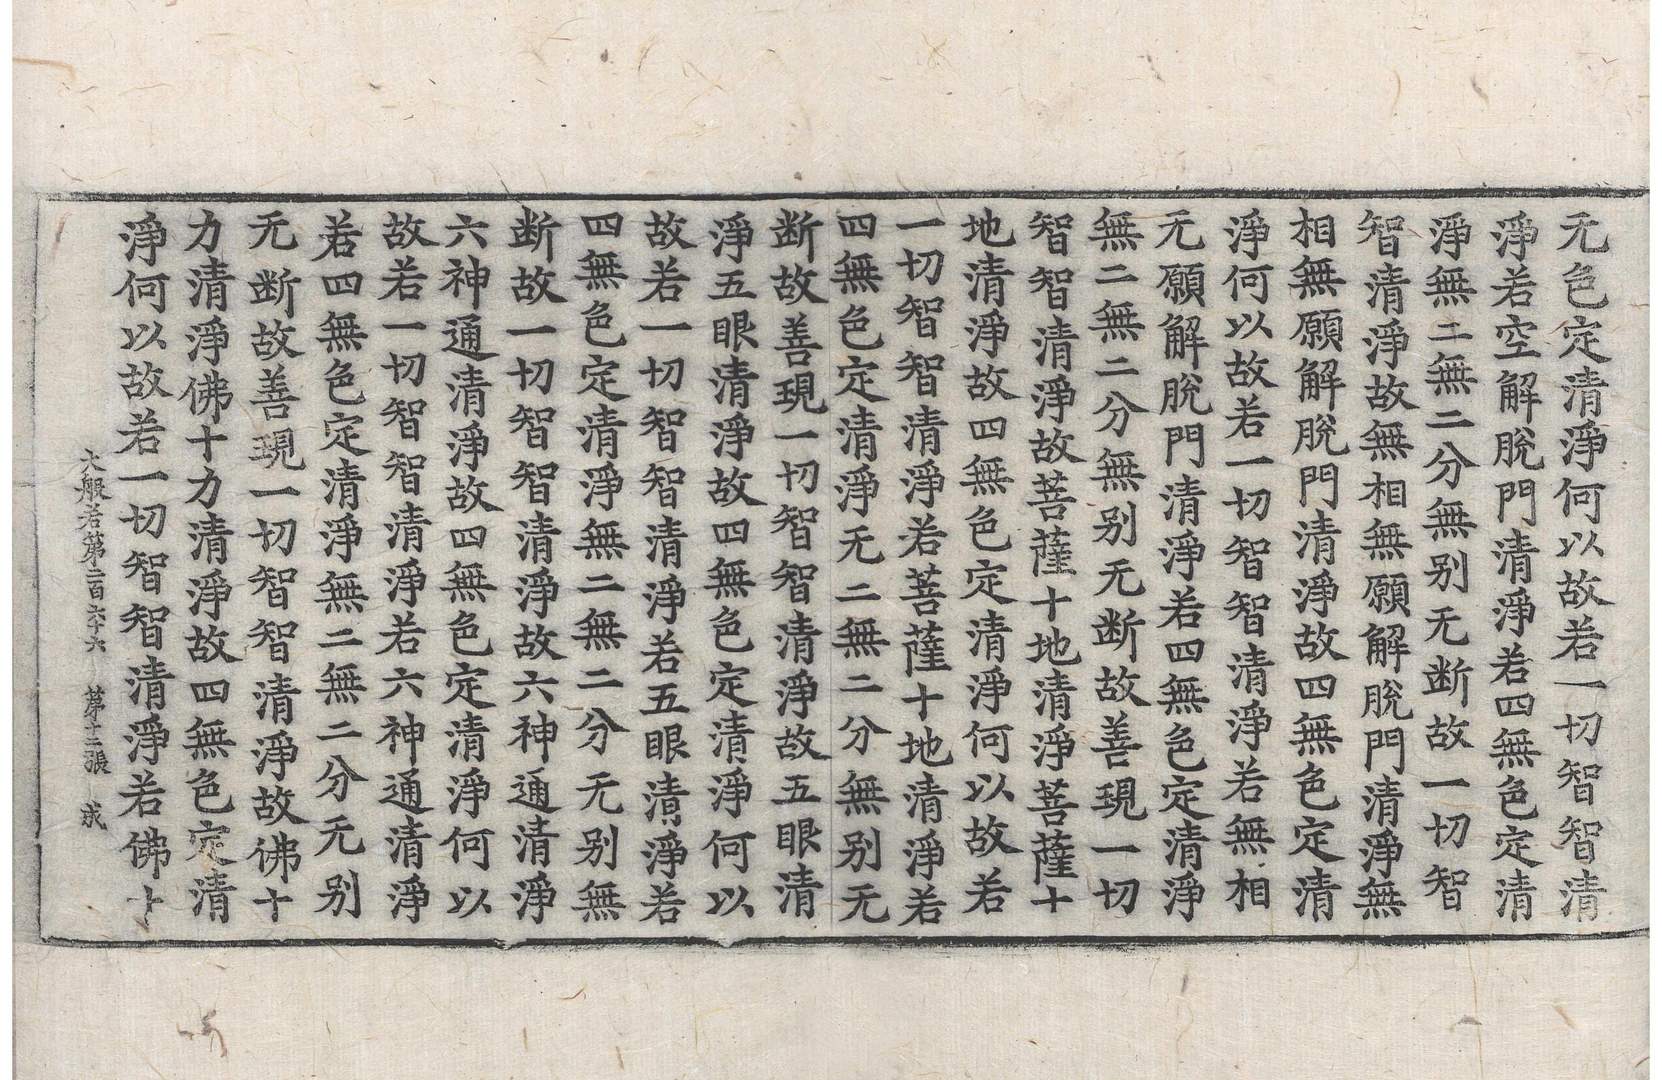 无色定清淨何以故若一切智智清
淨若空解脫門清淨若四無色定清
淨無二無二分無别无断故一切智
智清淨故無相無願解脫門清淨無
相無願解脫門清淨故四無色定清
淨何以故若一切智智清淨若無相
无願解脫門清淨若四無色定清淨
無二無二分無别无断故善現一切
智智清淨故菩薩十地清淨菩薩十
地清淨故四無色定清淨何以故若
一切智智清淨若菩薩十地清淨若
四無色定清淨无二無二分無别无
断故善現一切智智清淨故五眼清
淨五眼清淨故四無色定清淨何以
故若一切智智清淨若五眼清淨若
四無色定清淨無二無二分无别無
断故一切智智清淨故六神通清淨
六神通清淨故四無色定清淨何以
故若一切智智清淨若六神通清淨
若四無色定清淨無二無二分无别
无断故善現一切智智清淨故佛十
力清淨佛十力清淨故四無色定清
淨何以故若一切智智清淨若佛十
大般若第二百六十六 第十二張 成